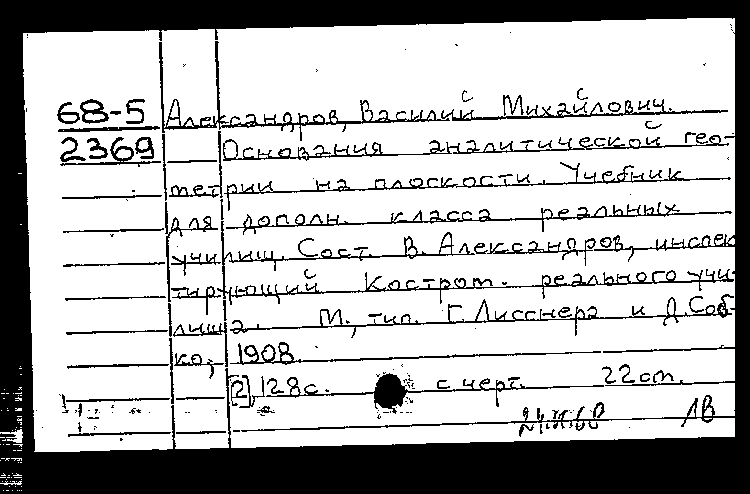 68-5 Александров, Василий Михайлович.
2369 Основания аналитической гео-
метрии на плоскости. Учебник
для дополн. класса реальных
училищ. Сост. В. Александров, инспек
тирующий Костром. реального учи
лища. М., тип. Г. Лисснера и Д. Соб-
ко, 1908.
[2], 128с. с черт. 22ст.
1В